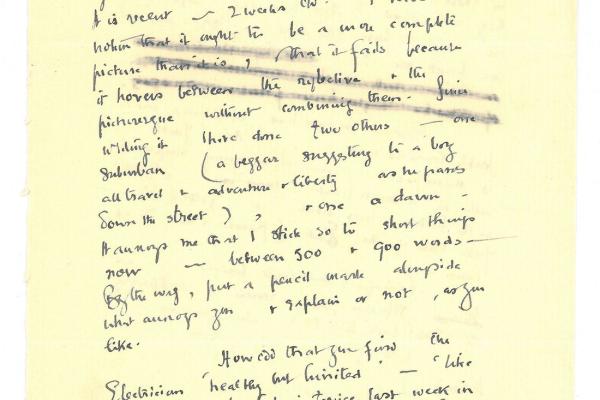 It is recent — 2 weeks
notion that it ought to be a more complete
picture than it is, that it fails because
it hovers between the reflective & the
picturesque without combining them. Since
writing it I have done two others — one
suburban (a beggar suggesting to a boy
all travel & adventure & liberty as he passes
down the street), & one a dawn —
It annoys me that I stick so to short things
now — between 500 & 900 words —
By the way, put a pencil mark alongside
what annoys you & explain or not, as you
like.
How odd that you find the
Electrician 'healthy but limited' — 'like
twice last week in